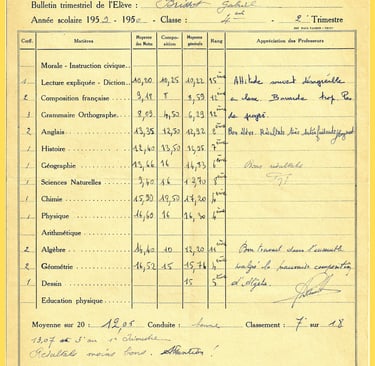 Bulletin trimestriel de l'Elève : Gabriel
Année scolaire 195 - 195 - Classe : 4ème - 2e Trimestre
Coef. Matières Moyenne des Notes Compo-sition Moyenne générale Rang Appréciation des Professeurs
Morale - Instruction civique
1 Lecture expliquée - Diction 10,20 10,25 10,22 15 Attitude souvent désagréable
2 Composition française 9,18 8 8,59 12 en classe Bavarde trop. Pas
3 Grammaire Orthographe 8,09 4,50 6,29 12 de progrès.
2 Anglais 13,35 12,50 12,92 Bon élève. Résultats très satisfaisants
1 Histoire 12,60 13,50
1 Géographie 13,66 16 14,83 résultats
1 Sciences Naturelles 16 5
1 Chimie 15,90 19,50 17,70 4
1 Physique 16,60 16 16,30 4
Arithmétique
2 Algèbre 14,40 10 12,20 11 Bon travail dans l'ensemble
2 Géométrie 16,52 15 15,76 malgré la mauvaise composition
1 Dessin 15 d'Algèbre.
Education physique
Moyenne sur 20 : 12,05 Conduite : bonne Classement : 7e sur 18
13,07 et 3e au 1er trimestre
Résultats moins bons. Attention !